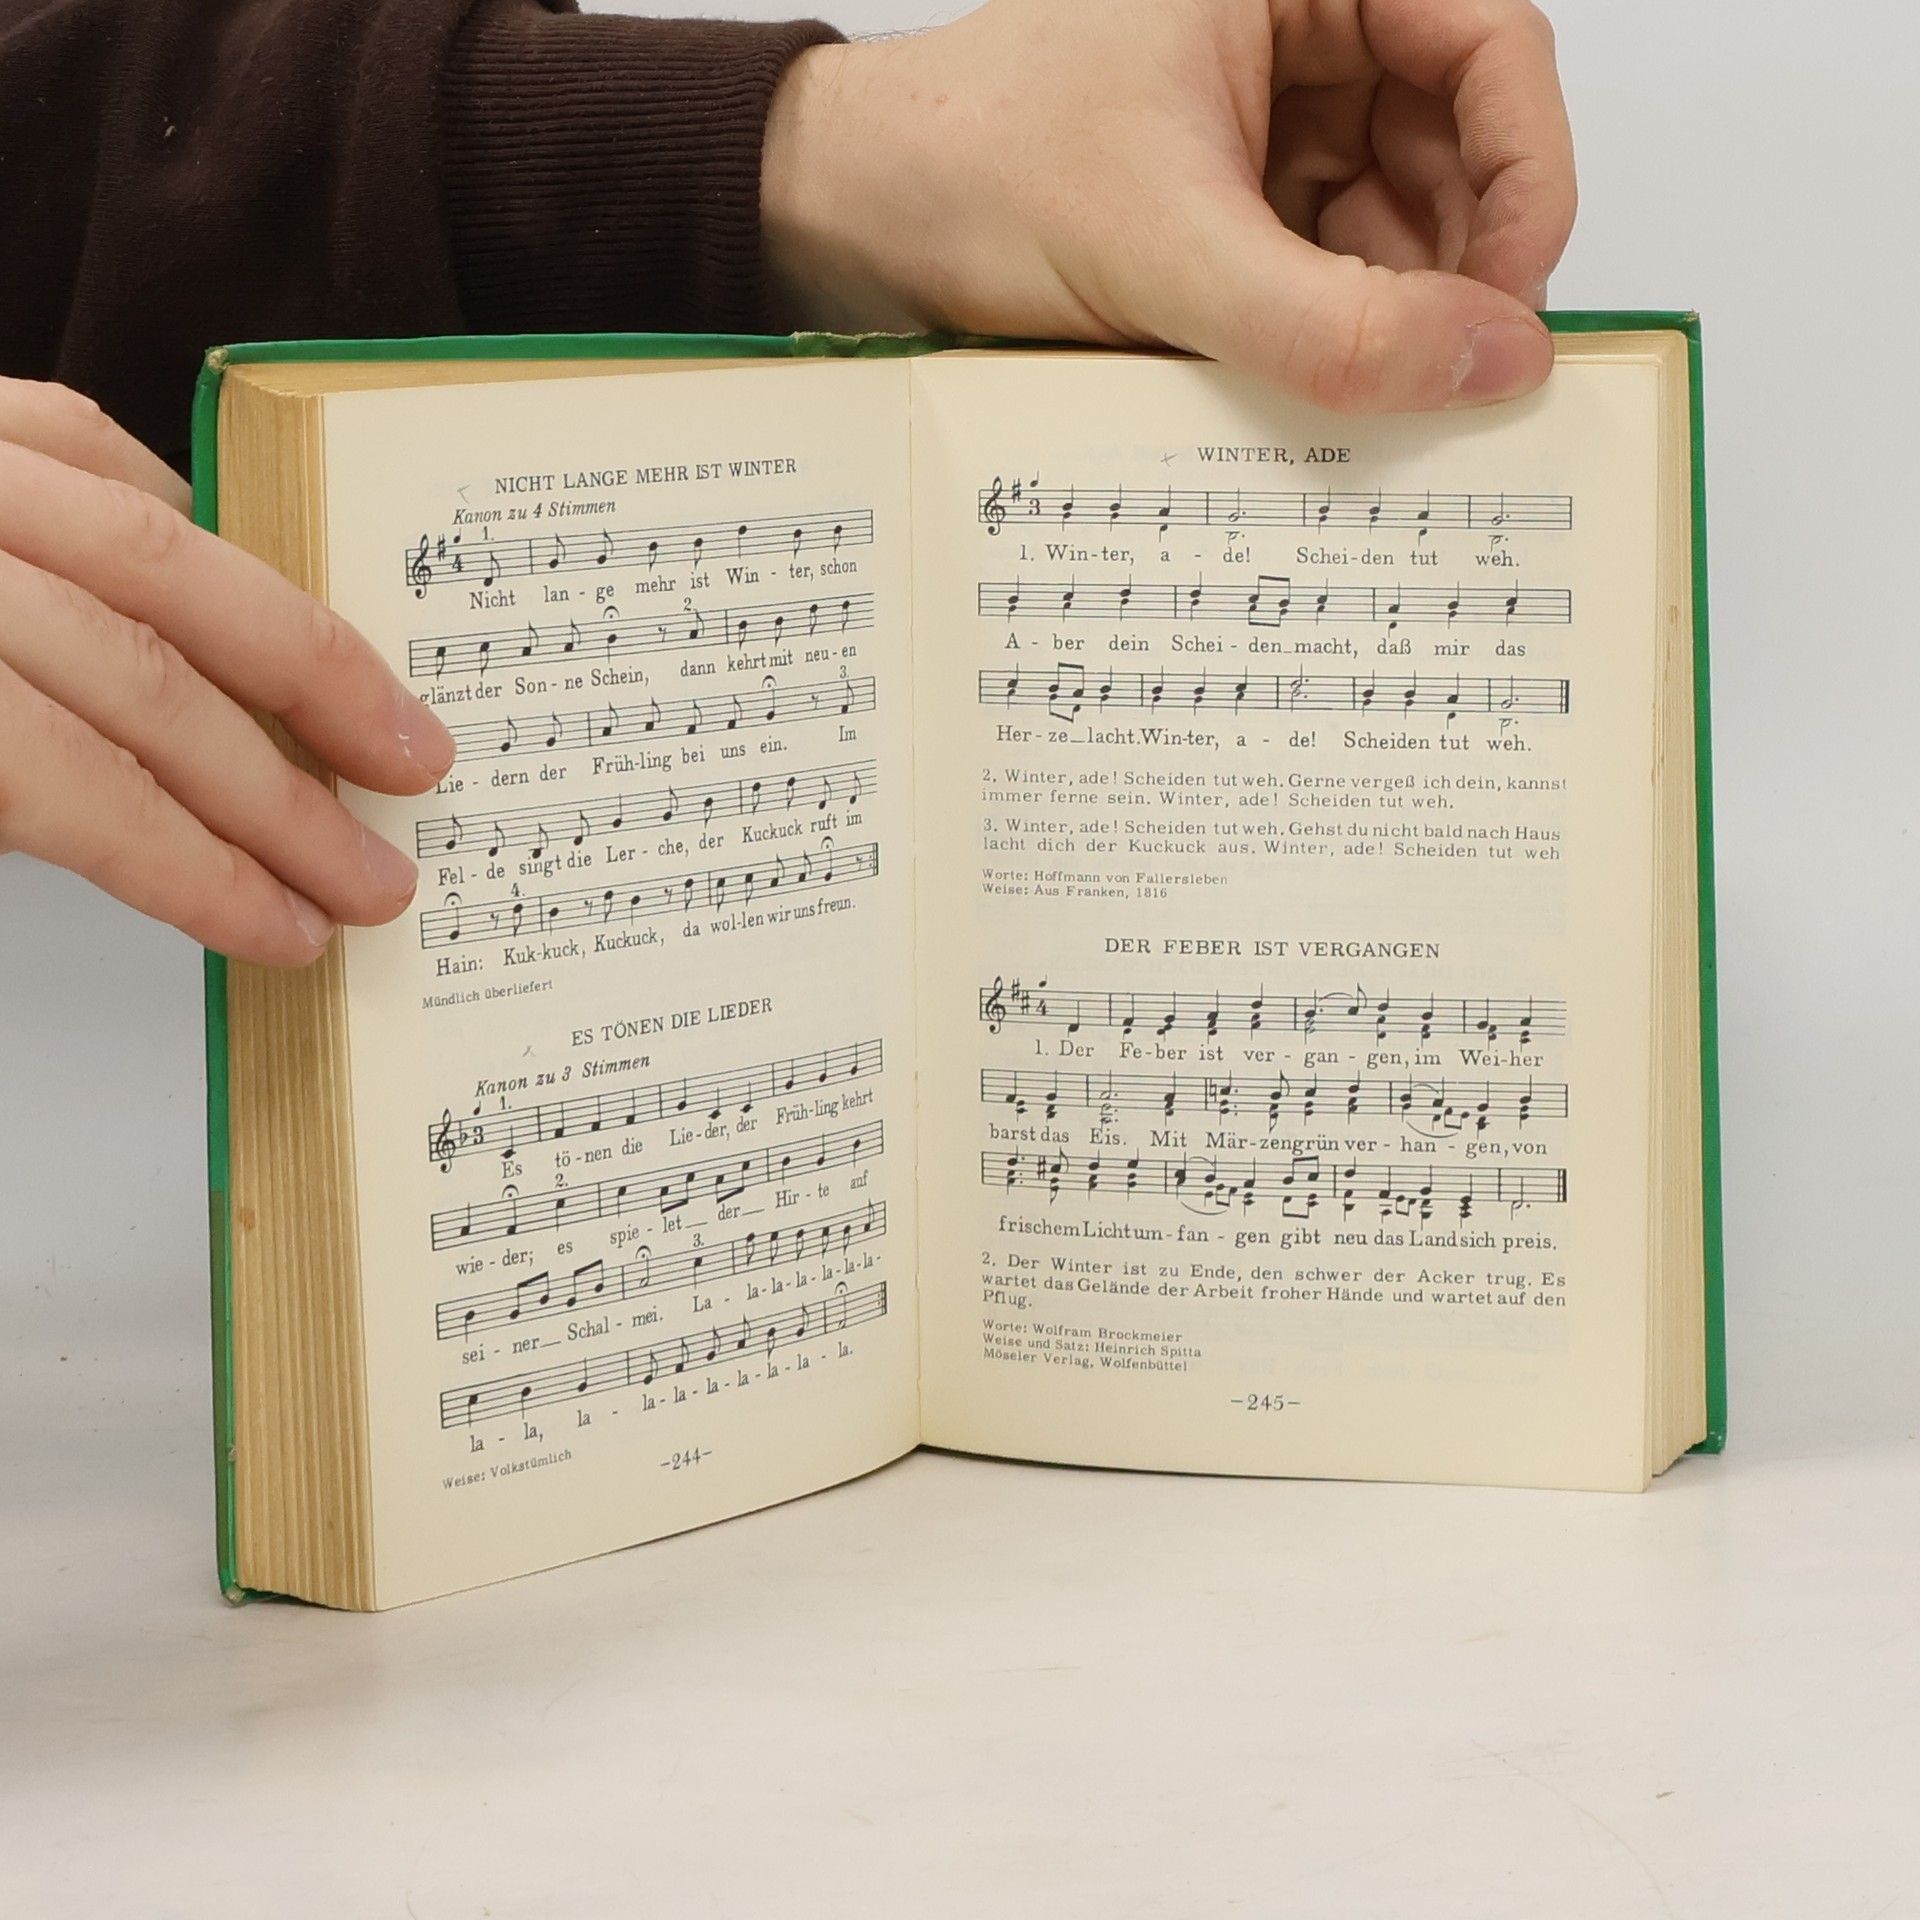 NICHT LANGE MEHR IST WINTER
Kanon zu 4 Stimmen
1.
4
Nicht lan - ge mehr ist Win - ter, schon
2.
glänzt der Son - ne Schein, dann kehrt mit neu - en
3.
Lie - dern der Früh-ling bei uns ein. Im
Fel - de singt die Ler - che, der Kuckuck ruft im
4.
Hain: Kuk-kuck, Kuckuck, da wol-len wir uns freun.
Mündlich überliefert
ES TÖNEN DIE LIEDER
Kanon zu 3 Stimmen
1.
3
Es tö - nen die Lie - der, der Früh - ling kehrt
2.
wie - der; es spie - let_ der_ Hir - te auf
3.
sei - ner_ Schal - mei. La - la - la - la - la - la -
la - la, la - la - la - la - la - la - la - la.
Weise: Volkstümlich
-244-
WINTER, ADE
3
1. Win-ter, a - de! Schei-den tut weh.
A - ber dein Schei - den_macht, daß mir das
Her - ze_lacht. Win-ter, a - de! Scheiden tut weh.
2. Winter, ade! Scheiden tut weh. Gerne vergeß ich dein, kannst
immer ferne sein. Winter, ade! Scheiden tut weh.
3. Winter, ade! Scheiden tut weh. Gehst du nicht bald nach Haus
lacht dich der Kuckuck aus. Winter, ade! Scheiden tut weh
Worte: Hoffmann von Fallersleben
Weise: Aus Franken, 1816
DER FEBER IST VERGANGEN
4
1. Der Fe-ber ist ver - gan - gen, im Wei-her
barst das Eis. Mit Mär-zengrün ver - han - gen, von
frischem Licht um - fan - gen gibt neu das Land sich preis.
2. Der Winter ist zu Ende, den schwer der Acker trug. Es
wartet das Gelände der Arbeit froher Hände und wartet auf den
Pflug.
Worte: Wolfram Brockmeier
Weise und Satz: Heinrich Spitta
Möseler Verlag, Wolfenbüttel
-245-